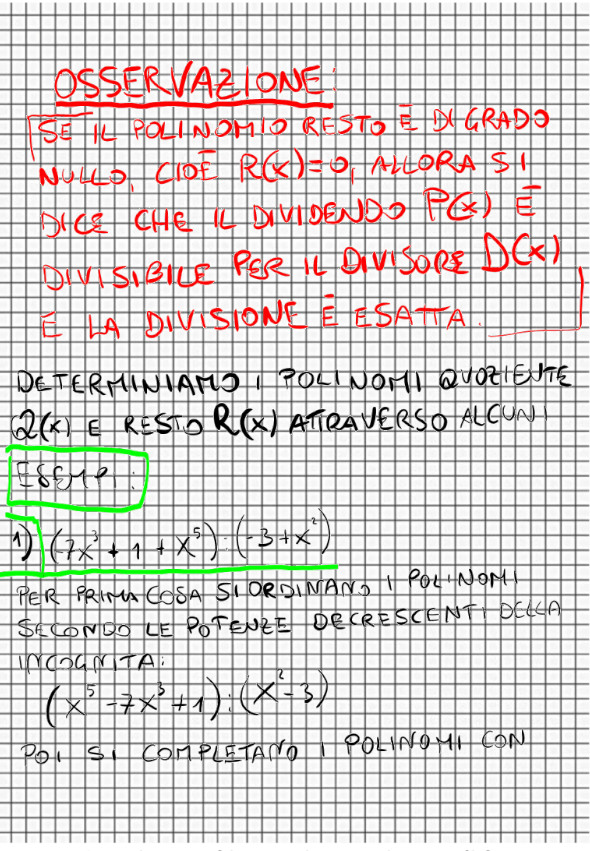 OSSERVAZIONE:
SE IL POLINOMIO RESTO È DI GRADO
NULLO, CIOÈ R(x)=0, ALLORA SI
DICE CHE IL DIVIDENDO P(x) È
DIVISIBILE PER IL DIVISORE D(x)
E LA DIVISIONE È ESATTA.
DETERMINIAMO I POLINOMI QUOZIENTE
Q(x) E RESTO R(x) ATTRAVERSO ALCUNI
ESEMPI:
1) (-7x³ + 1 + x⁵):(-3+x²)
PER PRIMA COSA SI ORDINANO I POLINOMI
SECONDO LE POTENZE DECRESCENTI DELLA
INCOGNITA:
(x⁵ -7x³ +1):(x²-3)
POI SI COMPLETANO I POLINOMI CON